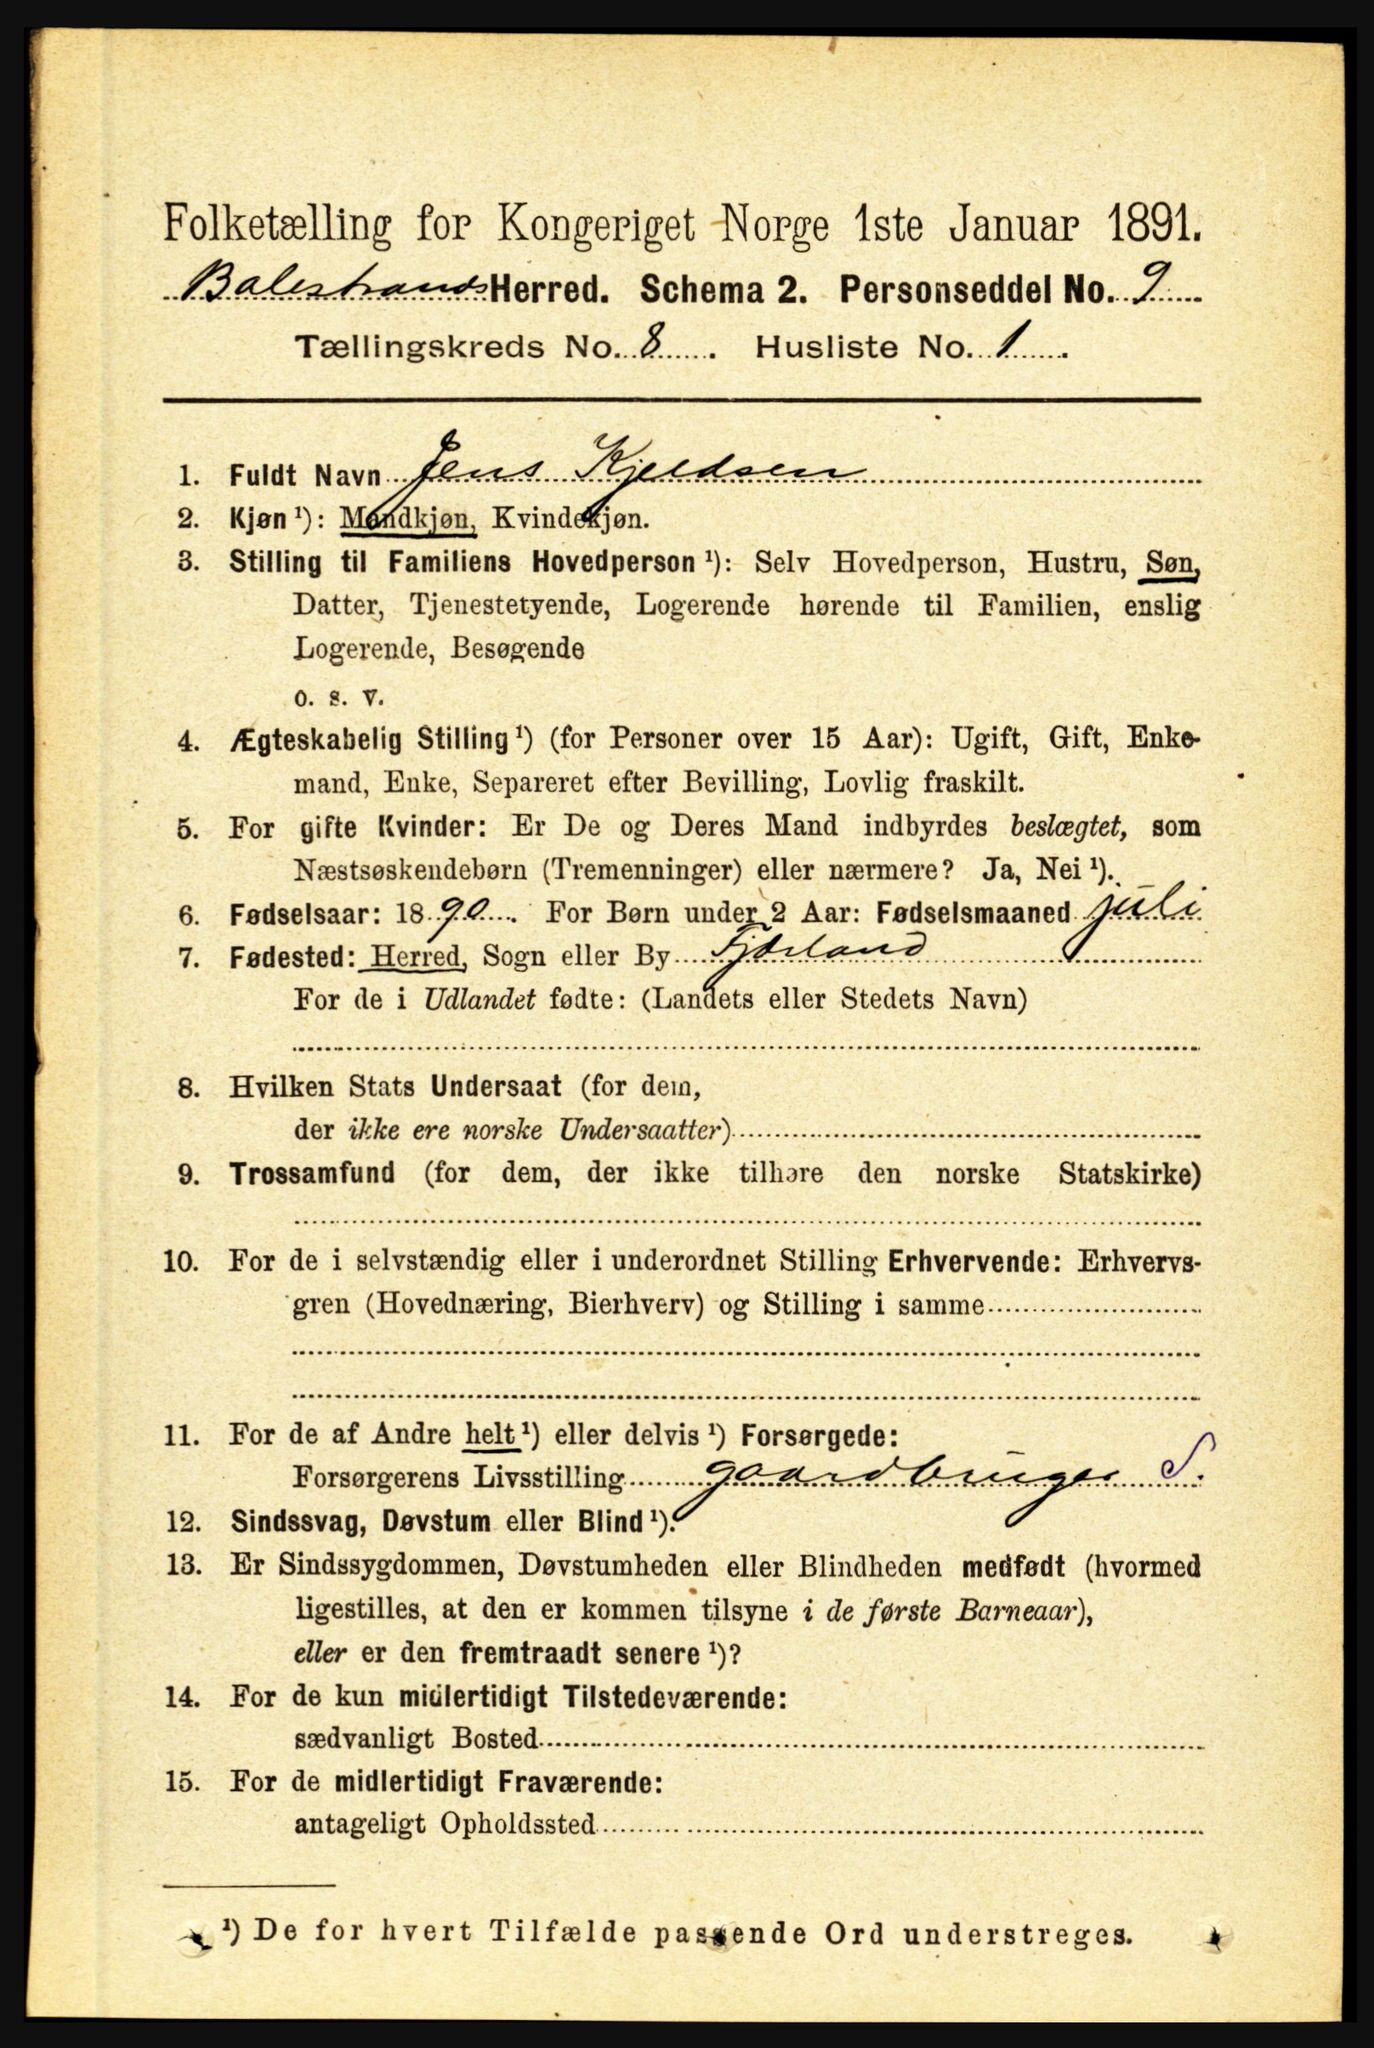 Folketælling for Kongeriget Norge 1ste Januar 1891.
Balestrands Herred. Schema 2. Personseddel No. 9
Tællingskreds No. 8. Husliste No. 1.
1. Fuldt Navn Jens Kjeldsen
2. Kjøn ¹): Mandkjøn, Kvindekjøn.
3. Stilling til Familiens Hovedperson ¹): Selv Hovedperson, Hustru, Søn,
Datter, Tjenestetyende, Logerende hørende til Familien, enslig
Logerende, Besøgende
o. s. v.
4. Ægteskabelig Stilling ¹) (for Personer over 15 Aar): Ugift, Gift, Enke-
mand, Enke, Separeret efter Bevilling, Lovlig fraskilt.
5. For gifte Kvinder: Er De og Deres Mand indbyrdes beslægtet, som
Næstsøskendebørn (Tremenninger) eller nærmere? Ja, Nei ¹).
6. Fødselsaar: 1890. For Børn under 2 Aar: Fødselsmaaned juli
7. Fødested: Herred, Sogn eller By Fjærland
For de i Udlandet fødte: (Landets eller Stedets Navn)
8. Hvilken Stats Undersaat (for dem,
der ikke ere norske Undersaatter)
9. Trossamfund (for dem, der ikke tilhøre den norske Statskirke)
10. For de i selvstændig eller i underordnet Stilling Erhvervende: Erhvervs-
gren (Hovednæring, Bierhverv) og Stilling i samme
11. For de af Andre helt ¹) eller delvis ¹) Forsørgede:
Forsørgerens Livsstilling gaardbruger S.
12. Sindssvag, Døvstum eller Blind ¹).
13. Er Sindssygdommen, Døvstumheden eller Blindheden medfødt (hvormed
ligestilles, at den er kommen tilsyne i de første Barneaar),
eller er den fremtraadt senere ¹)?
14. For de kun midlertidigt Tilstedeværende:
sædvanligt Bosted
15. For de midlertidigt Fraværende:
antageligt Opholdssted
¹) De for hvert Tilfælde passende Ord understreges.